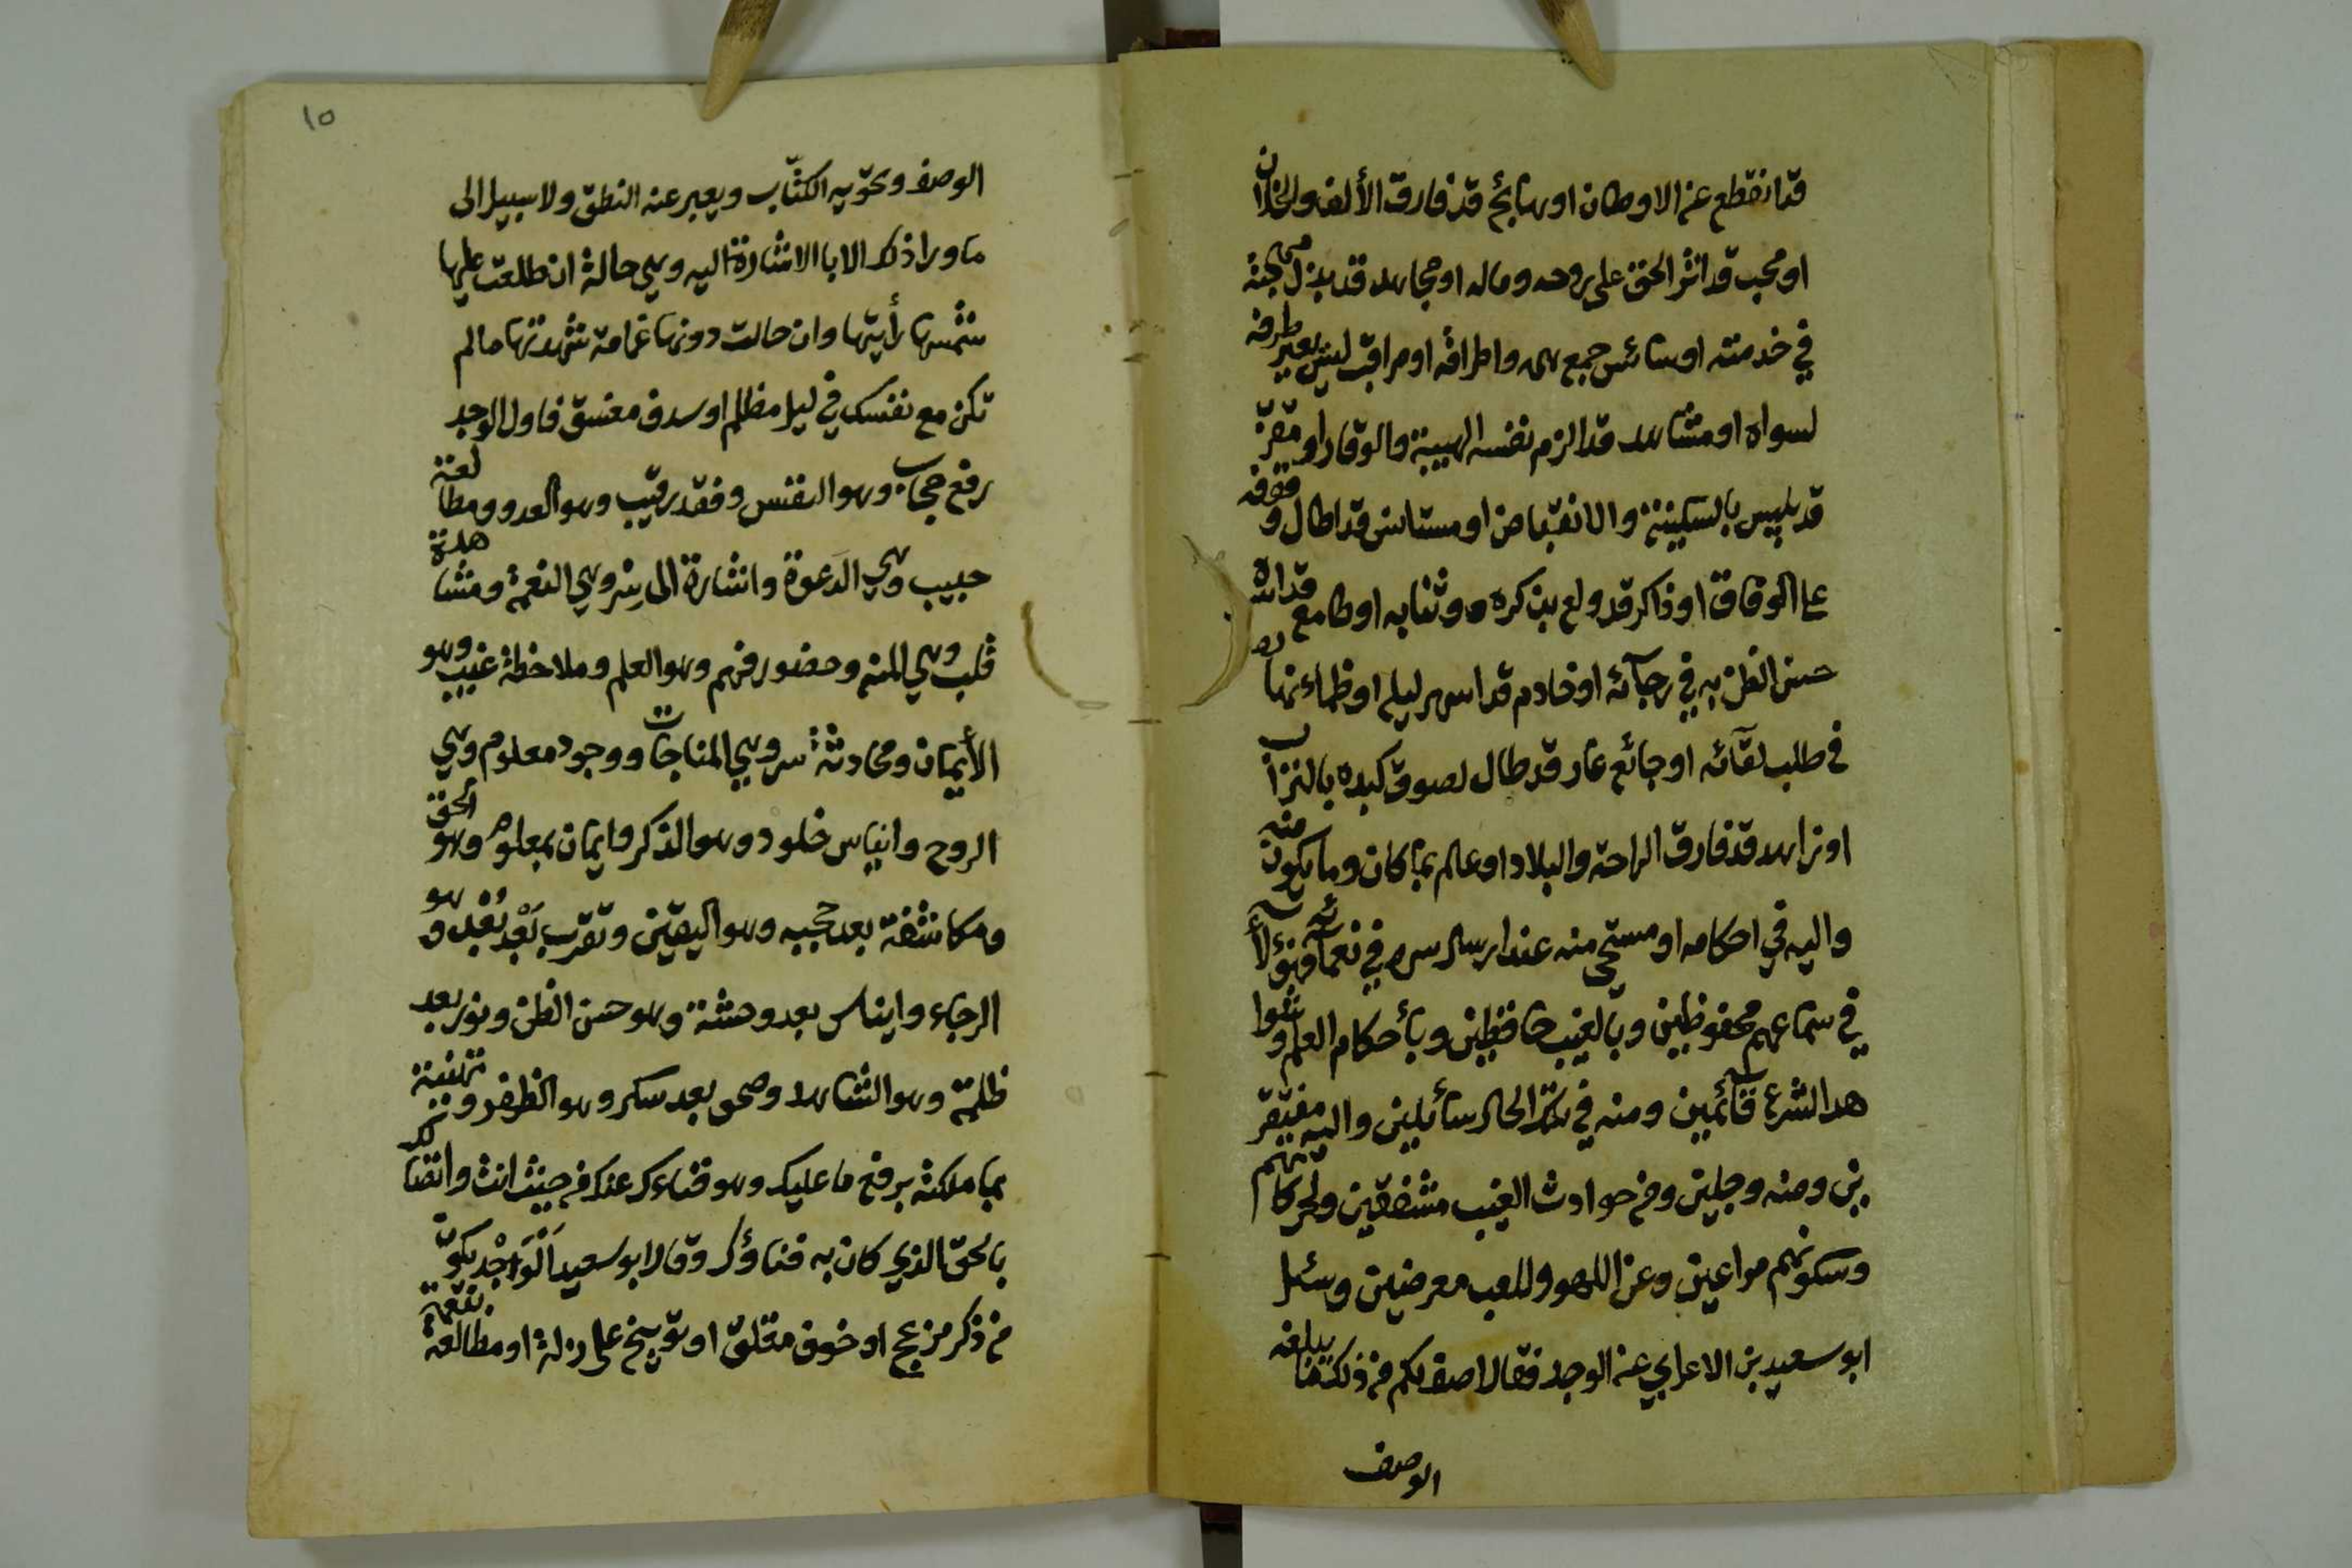 قد انقطع عن الاوطان او سائح قد فارق الألف والخلان
او محب قد اثر الحق على روحه وماله او مجاهد قد بذل مهجته
في خدمته او سائس جمع همه واطرافه او مراقب ليس يعير طرفه
لسواه او مشاهد قد الزم نفسه الهيبة والوقار او مقرّ
قد بالسكينة والانقباض او مستانس قد اطال وقوفه
على الوفاق او ذاكر قد ولع بذكره وثنايه او طامع قد
حسن الظن به في رجآئه او خادم قد اسهر ليله او ظماء نهاره
في طلب لقآئه او جائع عار قد طال لصوق كبده بالتراب
او زاهد قد فارق الراحة والبلاد او عالم بما كان وما يكون منه
واليه في احكامه او مستحى منه عند ارسال سره في نعمآئه فهؤلآء
في سماعهم محفوظين وبالغيب حافظين وبأحكام العلم
الشرع قآئمين ومنه في الحال سائلين واليه مفتقر
ين ومنه وجلين ومن حوادث الغيب مشفقين ولحركاتهم
وسكونهم مراعين وعن اللهو واللعب معرضين وسئل
ابو سعيد بن الاعرابي عن الوجد فقال اصف لكم من ذلك ما يبلغه
الوصف
١٥
الوصف ويحويه الكتاب ويعبر عنه النطق ولا سبيل الى
ما ورا ذلك الا بالاشارة اليه وهي حالة ان طلعت عليها
شمسها رأيتها وان حالت دونها غمامة شهدتها ما لم
تكن مع نفسك في ليل مظلم او سدف مغسق فاول الوجد
رفع حجاب وهو النفس وفقد رقيب وهو العدو ومطالعة
حبيب وهي الدَعوة واشارة الى سِرّ وهي النعمة ومشاهدة
قلب وهي المنه وحضور فهم وهو العلم وملاحظة غيب وهو
الأيمان ومحادثة سر وهي المناجات ووجود معلوم وهي
الروح وايناس خلود وهو الذكر وايمان بمعلوم وهو الحق
ومكاشفة بعد حجبه وهو اليقين وتقرب بَعْد بُعْد وهو
الرجاء وايناس بعد وحشة وهو حسن الظن ونور بعد
ظلمة وهو الشاهد وصحو بعد سكر وهو الظفر وتهنية
بما ملكته برفع ما عليك وهو فناءك عنك من حيث انت واتصالك
بالحق الذي كان به فناؤك وقال ابو سعيد اَلْوَاجْد يكون
من ذكر مزعج او خوف مقلق او توبيخ على زلة او مطالعة نقمة